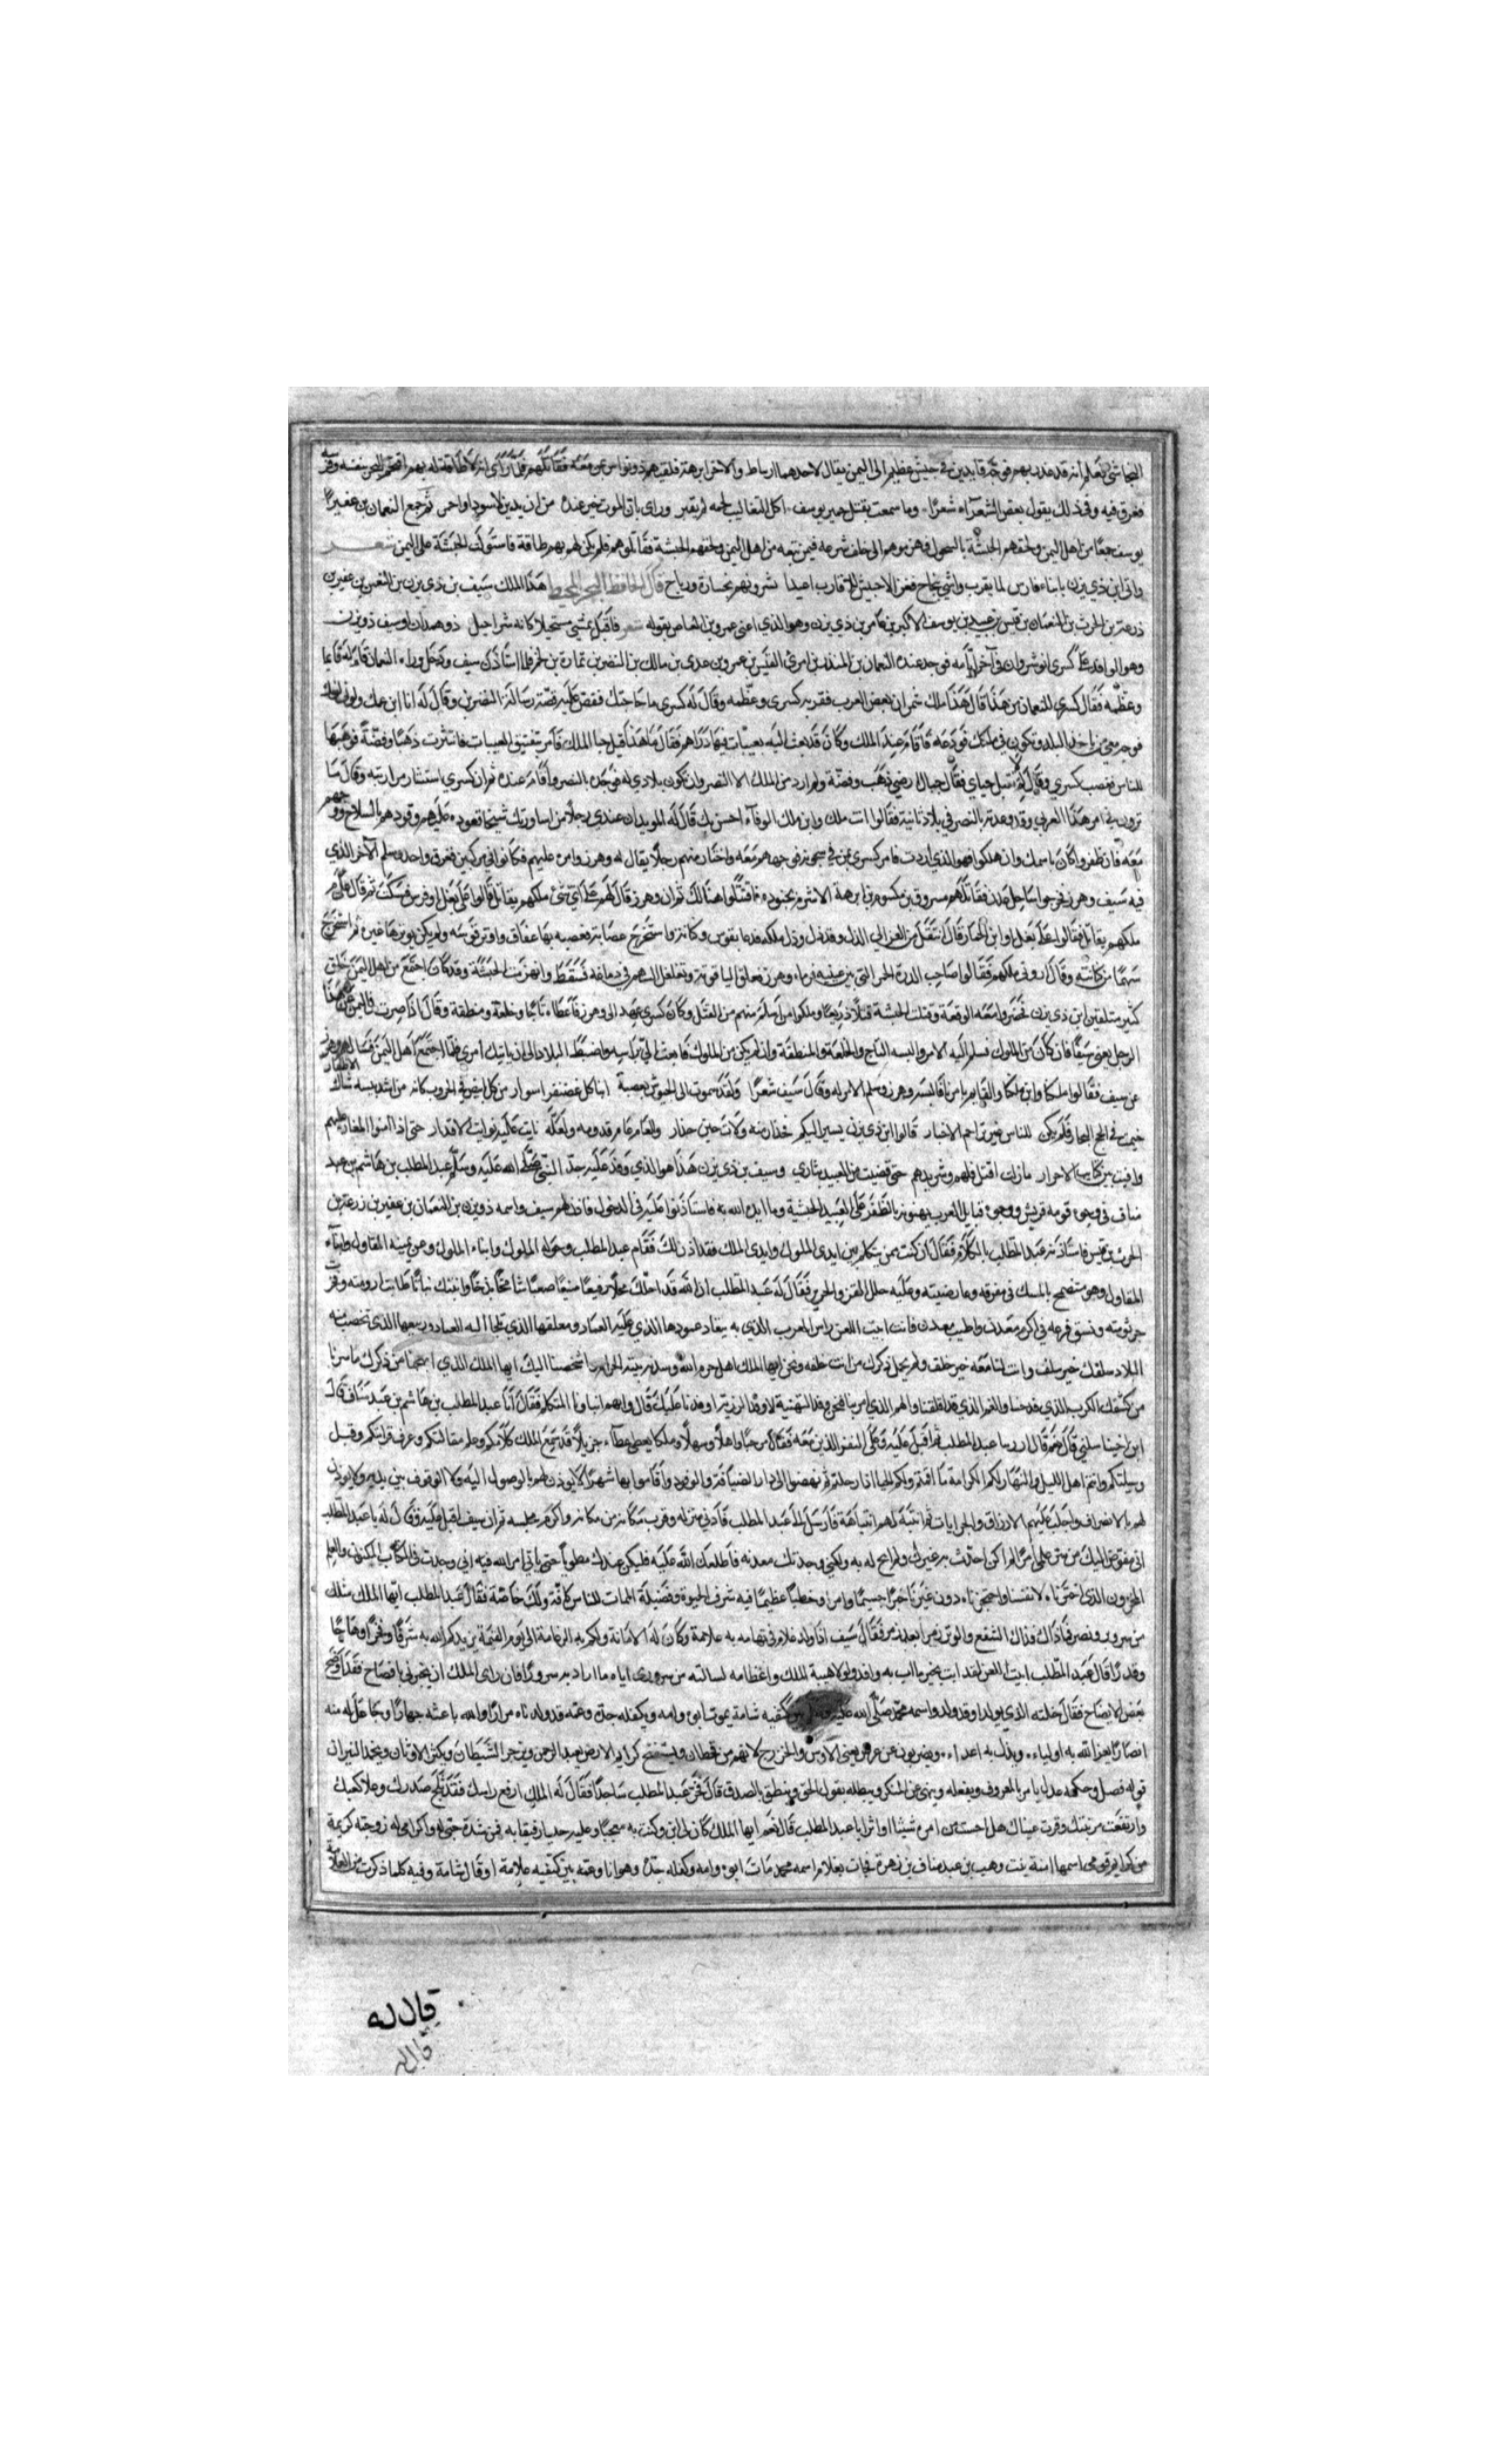 النجاشي فعلم انه قد غدر بهم فوجه قايدين في جيش عظيم الى اليمن يقال لاحدهما ارياط والاخر ابرهة فلقيهم ذو نواس بمن معه فقاتلهم فلما رأى انه لا طاقة له بهم اقتحم البحر بنفسه وفرسه
فغرق فيه وفي ذلك يقول بعض الشعرآء شعرًا وما سمعت بقتل حمير يوسف اكل الثعالب لحمه لم يقبر وراى بان الموت خير عنده من ان يدين لاسود او احمر ثم جمع النعمان بن عفير
يوسف جمعًا من اهل اليمن ولحقهم الحبشة فقاتلوهم فلم يكن لهم بهم طاقة فاستولت الحبشة على اليمن شعر
واتى ابن ذي يزن بابناء فارس لما يقرب قال الحافظ البحر المحيط هذا الملك سيف بن ذي يزن بن النعمن بن عفير بن
زرعة بن الحرث بن النعمان بن قيس بن عبيد بن يوسف الاكبر بن عامر بن ذي يزن وهو الذي اعنى عمرو بن العاص بقوله شعر فاقبل يمشي مستحيلا كانه شراحيل ذو همدان او سيف ذو يزن
وهو الوافد على كسرى انوشروان في آخر ايامه فوجد عنده النعمان بن المنذر بن امرئ القيس بن عمرو بن عدي بن مالك بن النضر بن نمارة بن لخم فلما استأذن سيف ودخل وراء النعمان قام له قايما
وعظّمه فقال كسرى للنعمان من هذا قال هذا ملك بعض العرب فقربه كسرى وعظّمه وقال له كسرى ما حاجتك فقص عليه قصة رسالة وقال له انا ابن عمك ولوني لونك
فوجه معي من احل البلد وتكون في ملكك فوعده فاقام عند الملك وكان قد بعث اليه بعيبات فيها دراهم فقال ما هذا قيل حبا الملك فامر بتفتيق العيبات فانتثرت ذهبًا وفضة فوهبها
للناس فغضب كسرى وقال له لم لا تقبل حباي فقال جبال ارضي ذهب وفضة ولم ارد من الملك الا النصر وان تكون بلادي له فوعده بالنصر واقام عنده ثم ان كسرى استشار مرازبته وقال ما
ترون في امر هذا العربي وقد وعدته بالنصر في بلاد ثانية فقالوا انت ملك وابن ملك الوفآء احسن بك قال له الموبدان عندي رجلا من اساورتك شيخا تعوده عليهم وقودهم بالسلاح ووجههم
معه فان ظفروا كان باسمك وان هلكوا فهو الذي اردت فامر كسرى بمن في سجونه فوجهاهم معه واختار منهم رجلا يقال له وهرز وامره عليهم فكانوا في مركبين فغرق واحد وسلم الآخر الذي
فيه سيف وهرز فخرجوا بساحل عدن فقاتلهم مسروق بن مكسوم بن ابرهة الاشرم بجنوده فاقتتلوا هنالك ثم ان وهرز قال لهم على اي شئ ملكهم يقاتل قالوا على بغل او فرس فسكت ثم قال على م
ملكهم يقاتل فقالوا على بغل او ابن الحمار قال انتقل من العز الى الذل وقد ذل وذل ملكه فدعا بقوس وكانه واستخرج عصابة فعصب بها واوتر قوسه ولم يكن يوترها غيره ثم استخرج
سهمًا من كنانته وقال اروني ملكهم فقالوا صاحب الدرة الحمرا التي بين عينيه فرماه وهرز ففلق الياقوته وتغلغل السهم في دماغه فسقط وانهزمت الحبشة وقد كان اجتمع من اهل اليمن خلق
كثير متلقين ابن ذي يزن فحضروا معه الوقعة وقتلت الحبشة قتلًا ذريعًا وملكوا من اسلم منهم من القتل وكان كسرى عهد الى وهرز فاعطاه تاجًا وخلعة ومنطقة وقال اذا صرت في اليمن
الرجل يعني سيفًا فان كان من الملوك فسلم اليه الامر والبسه التاج والخلعة والمنطقة وان لم يكن من الملوك فابعث الي براسه واضبط البلاد الى ان ياتيك امري فلما اجتمع اهل اليمن فسالهم وهرز
عن سيف فقالوا ملكنا وابن ملكنا والقايم بامرنا فالبسه وهرز وسلم الامر له وقال سيف شعرًا ولقد سموت الى الجيوش بعصبة ابنا كل غضنفر اسوار من كل ابيض في الحروب كانه من اشد بيسه شاك الاظفار
خيمت في لجج البحار فلم يكن للناس غير تراجم الاخبار قالوا ابن ذي يزن يسير اليكم فحذار منه ولات حين حذار والعام عام قدومه ولعلّه نايت عليه نوايب الاقدار حتى اذا امنوا المغار عليهم
وافيت بين كتايب الاحرار مازلت اقتل فلهم وشريدهم حتى قضيت من العبيد بثاري وسيف بن ذي يزن هذا هو الذي وفد عليه جدّ النبي محمد صلى الله عليه وسلم عبد المطلب بن هاشم بن عبد
مناف في وجوه قومه قريش ووجوه قبايل العرب يهنونه بالظفر على العبيد الحبشية وما ايده الله به فاستاذنوا عليه في الدخول فاذن لهم سيف واسمه ذو يزن بن النعمان بن عفير بن زرعة بن
الحرث بن قيس فاستاذنه عبد المطلب بالكلام فقال ان كنت ممن يتكلم بين ايدي الملوك وايدي الملك فقد اذن لك فقام عبد المطلب وحوله الملوك وابناء الملوك وعن يمينه المقاول وابنآء
المقاول وهو متضمخ بالمسك في مفرقه وعارضيته وعليه حلل القز والحرير فقال له عبد المطلب ان الله قد احلّك محلًا رفيعًا منيعًا صعبًا شامخًا باذخًا وانبتك نباتًا طابت ارومته وعزت
جرثومته وبسق فرعه في اكرم معدن واطيب معدن فانت ابيت اللعن راس العرب الذي به ينقاد عمودها الذي عليه العماد ومعقلها الذي تلجا اليه العباد وربيعها الذي تخصب منه
البلاد سلفك خير سلف وانت لنا معه خير خلف ولم يخمل ذكرك من انت خلفه ونحن ايها الملك اهل حرم الله وسدنة بيته الحرام اشخصنا اليك ايها الملك الذي ابهجنا من ذكرك ما سرنا
من كشفك الكرب الذي فدحنا والغم الذي قد اقلقنا والهم الذي امر بنا فنحن وفد التهنية لا وفد الرزية اوفدنا عليك قال وايهم انت ايها المتكلم فقال أنا عبد المطلب بن هاشم بن عبد مناف قال
ابن اختنا سلمى قال نعم قال ادن يا عبد المطلب ثم اقبل عليه وعلى النفر الذين معه فقال مرحبًا واهلًا وسهلًا وملكا يعطى عطآء جزيلًا قد سمع الملك كلامكم وعلم مقالتكم وعرف قرابتكم وقبل
وسيلتكم وانتم اهل الليل والنهار لكم الكرامة ما اقمتم ولكم الحبا اذا رحلتم ثم نهضوا الى دار الضيافة والوفود واقاموا بها شهرًا لا يوذن لهم بالوصول اليه ولا الوقوف بين يديه ولا يوذن
لهم بالانصراف واجلب عليهم الارزاق والجرايات ثم انتبه لهم انتباهة فارسل الى عبد المطلب فادنى منزله وقرب مكانه من مكانه واكرم مجلسه ثم ان سيف اقبل عليه وقال له يا عبد المطلب
اني مفوض اليك من سر علمي امرًا لم اكن احدّث به غيرك ولم ابح له به ولكني وجدتك معدنه فاطلعك الله عليه فليكن عندك مطويًا حتى ياتي امر الله فيه اني وجدت في الكتاب المكنون والعلم
المخزون الذي اخترناه لانفسنا واحتجبناه دون غيرنا خبرًا جسيمًا وامرا وخطبًا عظيمًا فيه شرف الحيوة وفضيلة الممات للناس كافة ولك خاصّة فقال عبد المطلب ايّها الملك مثلك
من سر وبر ونصر فما ذاك فذاك الشفع والوتر زمرا بعد زمر فقال سيف اذا ولد غلام في تهامه به علامة وكان له الامانة ولكم به الزعامة الى يوم القيمة يزيدكم الله به شرفًا وفخرًا وهاجًا
وقدرًا قال عبد المطلب ابيت اللعن لقد ابت بخير ما اب به وافد ولولا هيبة الملك واعظامه لسالته من سروري اياه ما ازداد به سرورًا فان راى الملك ان يخبرني بافصاح فقد اوضح
بعض الايضاح فقال خلته الذي يولد او قد ولد واسمه محمد صلى الله عليه بين كتفيه شامة يموت ابوه وامه ويكفله جده وعمّه قد ولدناه مرارًا والله باعثه جهارًا وجاعل له منه
انصارًا يعز الله به اولياءه ويذل به اعداءه ويضربون عن عرض يعني الاوس والخزرج لانهم من قحطان ويستفتح كرايم الارض يعبد الرحمن ويزجر الشيطان ويكسر الاوثان ويخمد النيران
قوله فصل وحكمه عدل يامر بالمعروف ويفعله وينهى عن المنكر ويبطله يقول الحق وينطق بالصدق قال فخرّ عبد المطلب ساجدًا فقال له الملك ارفع راسك فقد ثلج صدرك وعلا كعبك
وارتفعت مرتبتك وقرت عيناك هل احسست من امره شيئا او اثرًا يا عبد المطلب قال نعم ايها الملك كان لي ابن وكنت به معجبًا وعليه حدبا رفيقا به فمن شدة حبي له واكرامي له زوجته كريمة
من كرايم قومي اسمها امنة بنت وهب بن عبد مناف بن زهرة فجات بغلام اسمه محمد مات ابوه وامه وكفله جدّه وهو انا وعمّه بين كتفيه علامة او قال شامة وفيه كلما ذكرت من العلامة
قال له
قال له